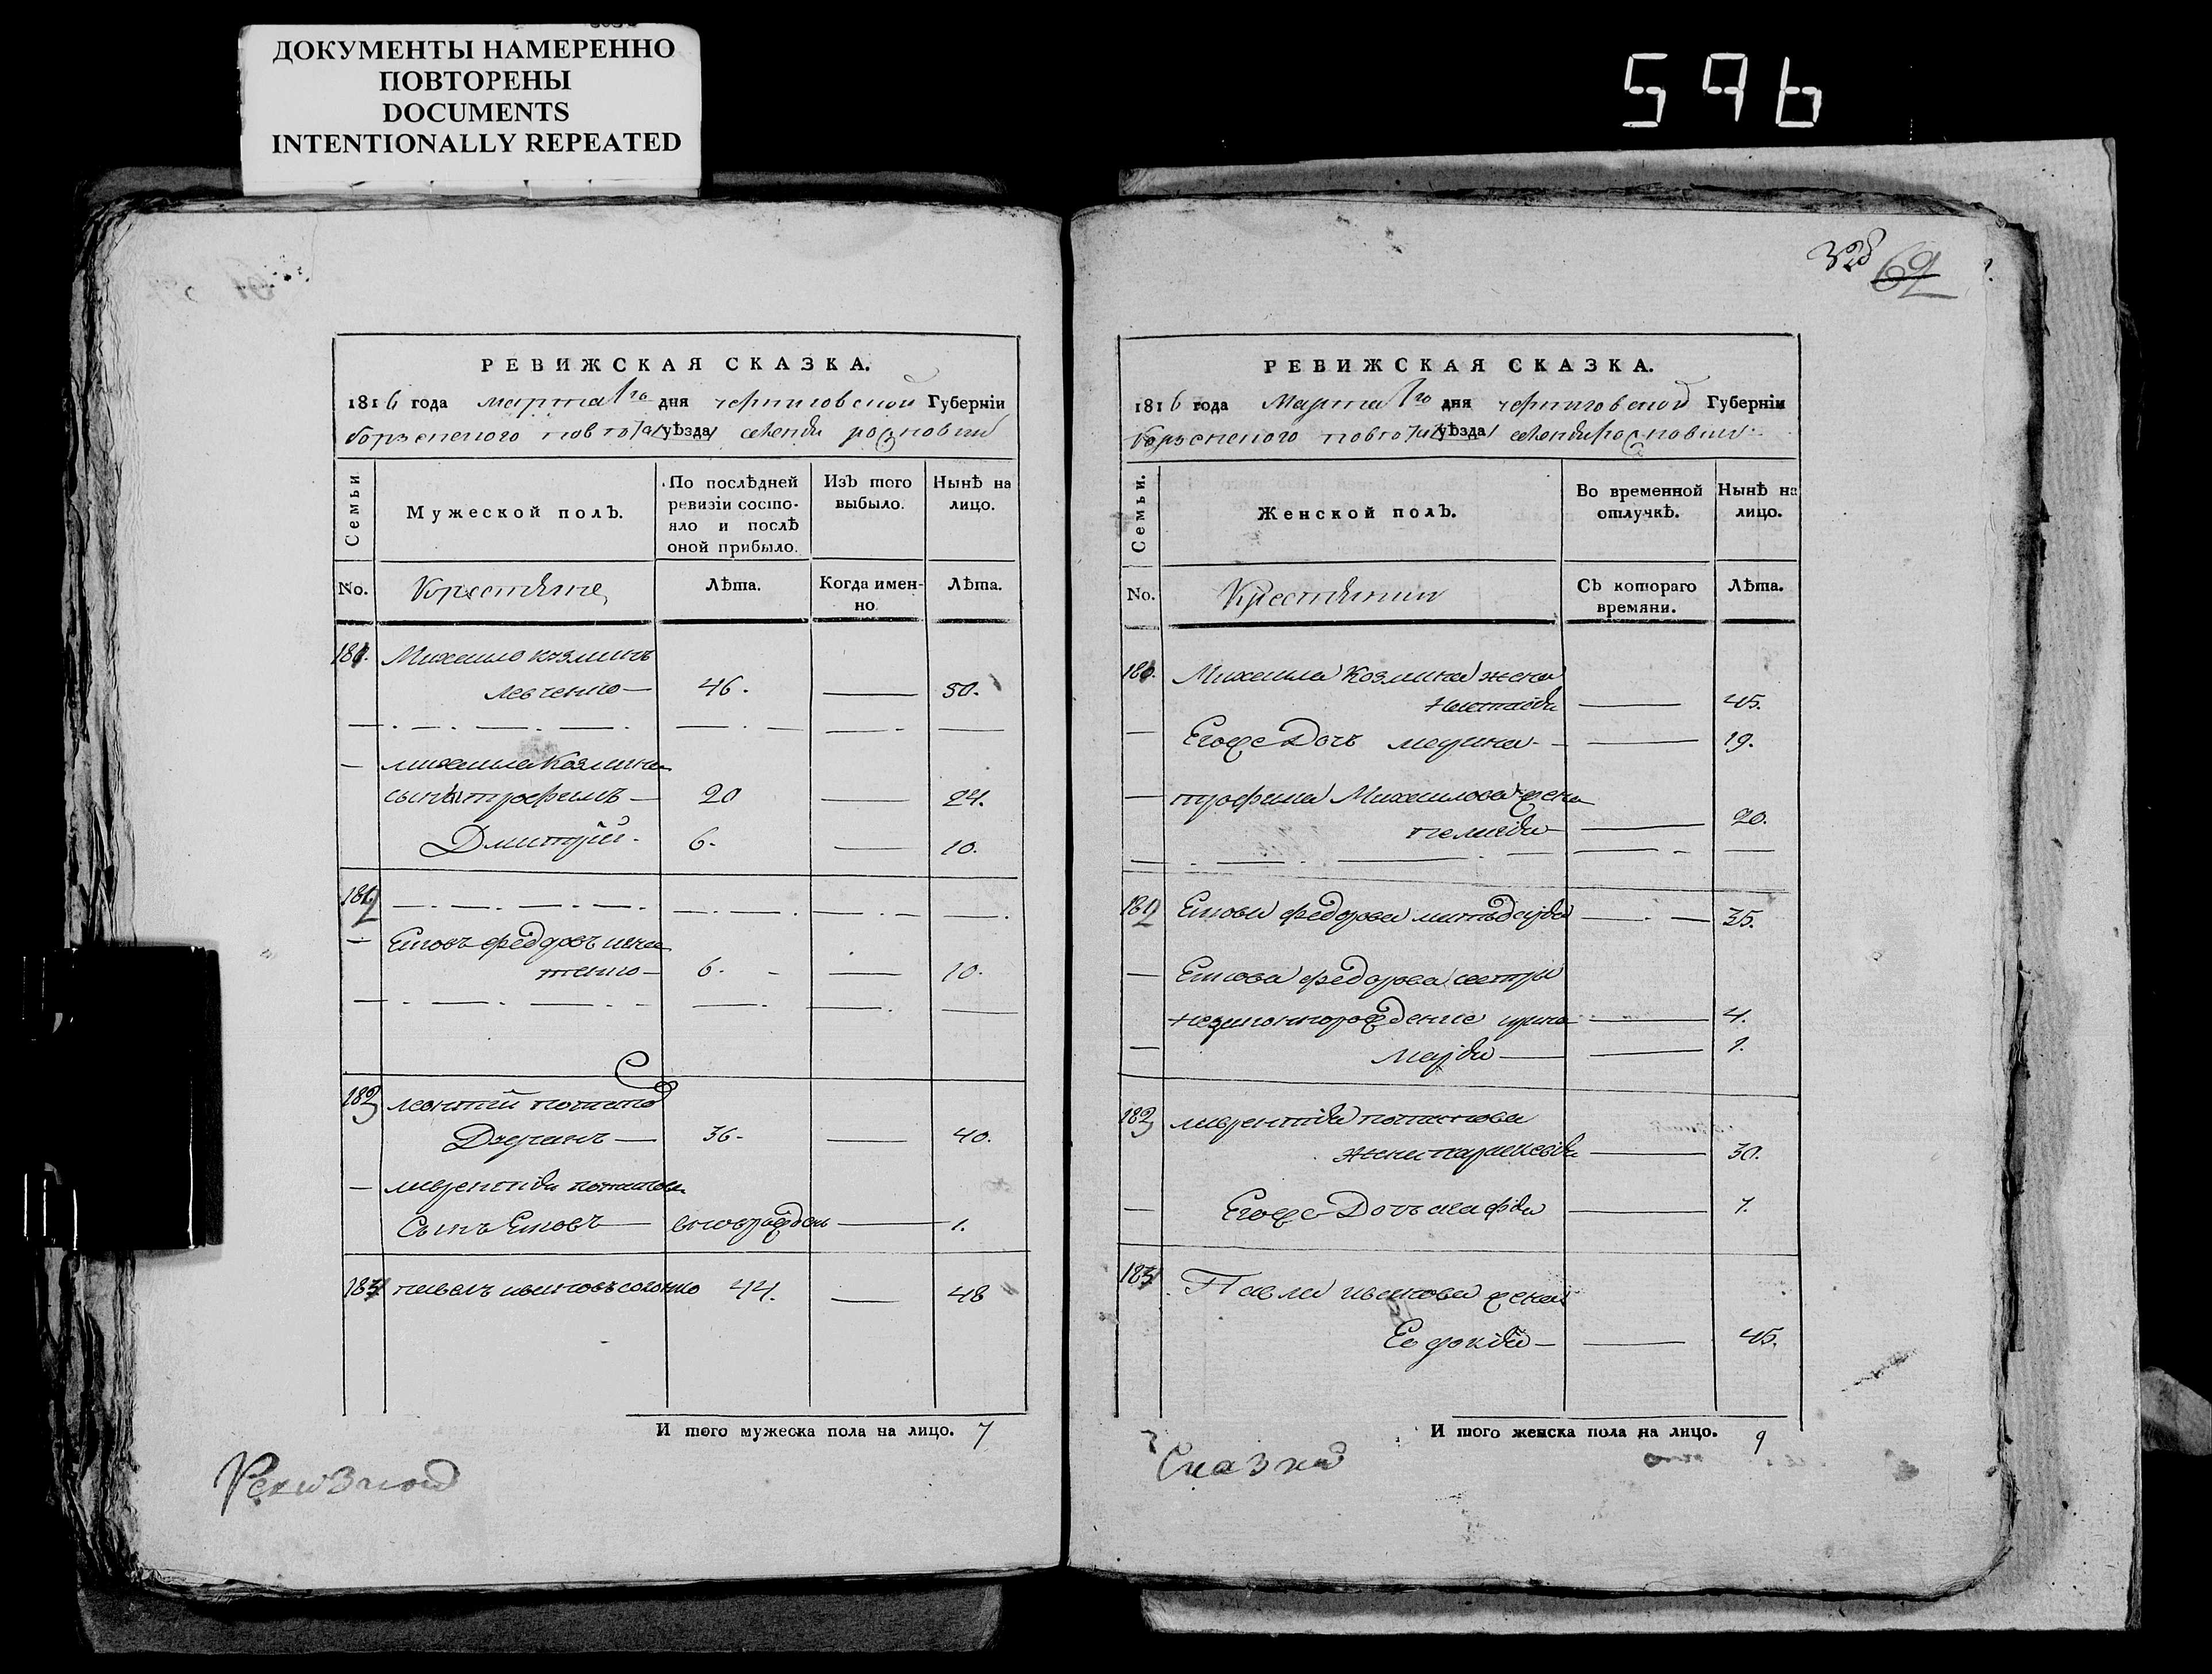 ДОКУМЕНТЫ НАМЕРЕННО
ПОВТОРЕНЫ
DOCUMENTS
INTENTIONALLY REPEATED
596
РЕВИЖСКАЯ СКАЗКА.
1816 года марта 1го дня черниговской Губерніи
борзенского повѣта /уѣзда/
Семьи
Мужеской полъ.
По послѣдней ревизіи состо-яло и послѣ оной прибыло.
Изъ того выбыло.
Нынѣ на лицо.
No.
Крестяне
Лѣта.
Когда имен-но.
Лѣта.
181. Михаило козминъ
Левченко — 46. — 50.
— михаила козмина
сынъ трофимъ — 20 — 24.
Дмитрій. 6. — 10.
182
— Яковъ федоровъ
6. — 10.
183 леонтий потапов
36. — 40.
— лаврентія потапова
Сынъ Яковъ — — 1.
184 павелъ ивановъ 44. — 48
И того мужеска пола на лицо. 7
Ревизной
328 62
РЕВИЖСКАЯ СКАЗКА.
1816 года Марта 1го дня черниговской Губерніи
борзенского повѣта /уѣзда/
Семьи.
Женской полъ.
Во временной отлучкѣ.
Нынѣ на лицо.
No.
Крестянки
Съ котораго времяни.
Лѣта.
181. Михаила Козмина жена
— 45.
— Егоже Дочь марина — 19.
— трофима Михаилова жена
пелагія — 20.
182 Якова федорова мать дарія — 35.
— Якова федорова сестры
ирина — 4.
— марія — 1.
183 лаврентія потапова
жена параскевія — 30.
— Егоже Дочь агафія — 7.
184 Павла иванова жена
Евдокія — 45.
И того женска пола на лицо. 9
Сказки